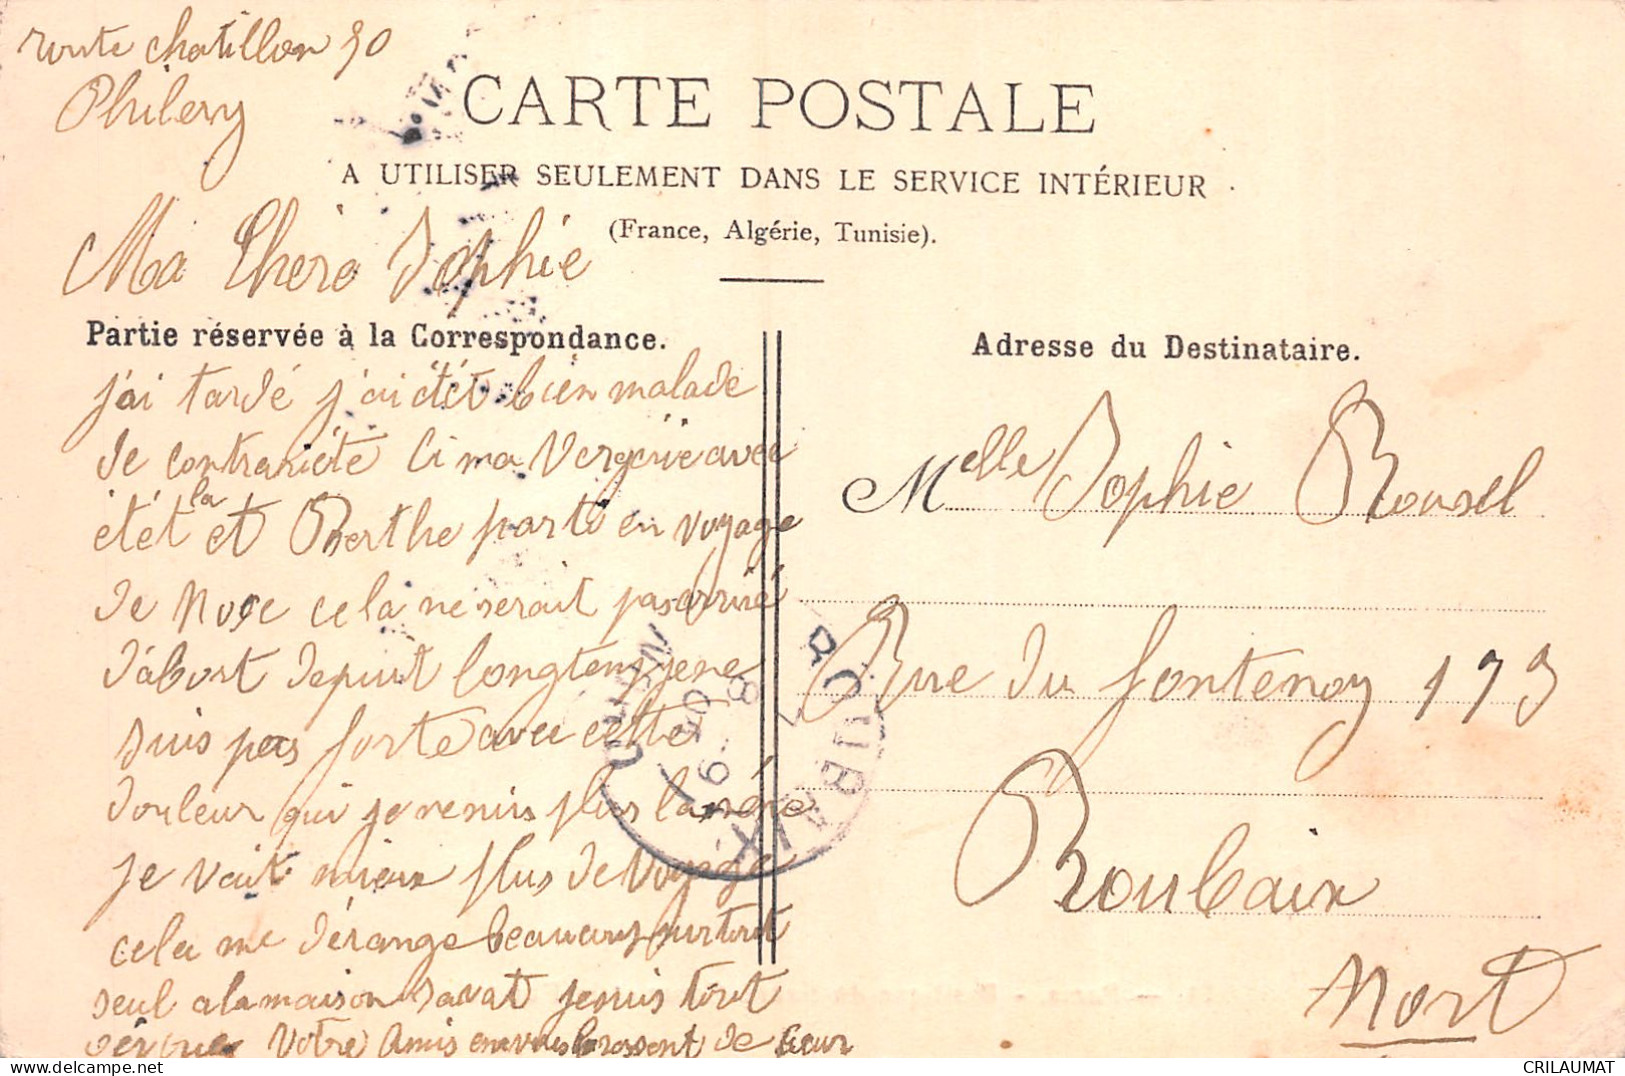 route chatillon 50
Philery
CARTE POSTALE
A UTILISER SEULEMENT DANS LE SERVICE INTÉRIEUR
(France, Algérie, Tunisie).
Ma Chère Sophie
Partie réservée à la Correspondance.
j'ai tardé j'ai étét bien malade
de contrariété Ci ma avec
étét la et Berthe parti en voyage
de cela ne serait pas arrivé
d'abort depuit longtemp je ne
suis pas forte avec cette
douleur qui je
je vait mieux plus de voyage
cela me dérange beaucoup surtout
seul a la maison savat je suis tout
Votre Amis en vous brassent de Cœur
Adresse du Destinataire.
Melle Sophie Rousel
Rue du fontenoy 173
Roubaix
Nort
ROUBAIX
8 - 9
CRILAUMAT